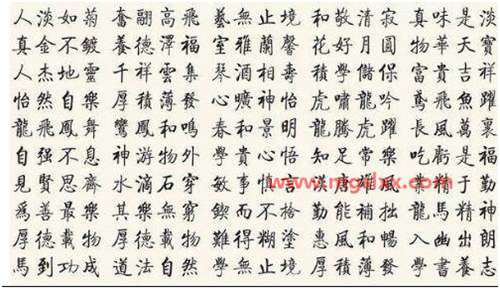 人淡如菊 奮翮高飛 藝無止境 和敬清寂 真味是淡
真金不鍍 養德澤福 室雅蘭馨 花好月圓 物華天寶
人杰地靈 千祥雲集 琴酒相壽 學儲保 富貴吉祥
怡然自樂 厚積薄發 曠神怡 虎嘯龍吟 鳶飛魚躍
龍飛鳳舞 鸞鳳和鳴 春和景明 龍騰虎躍 長風萬裏
自强不息 神游物外 學貴心悟 知足常樂 吃虧是福
見賢思齊 水滴石穿 敏事慎 于勤
爲善最樂 其樂無窮 鍥而不捨 勤能補拙 龍馬精神
厚德載物 厚德載物 難得糊塗 惠風和暢 入幽出朗
馬到功成 道法自然 學無止境 厚積薄發 學書養志